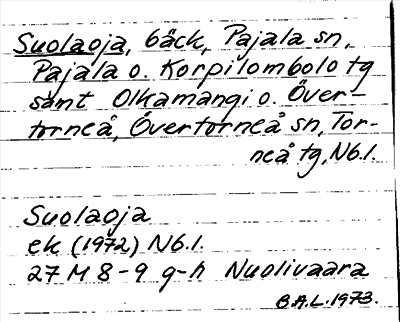 Suolaoja, bäck, Pajala sn,
Pajala o. Korpilombolo tg
samt Olkamangi o. Över-
torneå, Övertorneå sn, Tor-
neå tg, Nb.l.
Suolaoja
ek (1972) Nb.l.
27 M 8-9 g-h Nuolivaara
B.A.L. 1973.